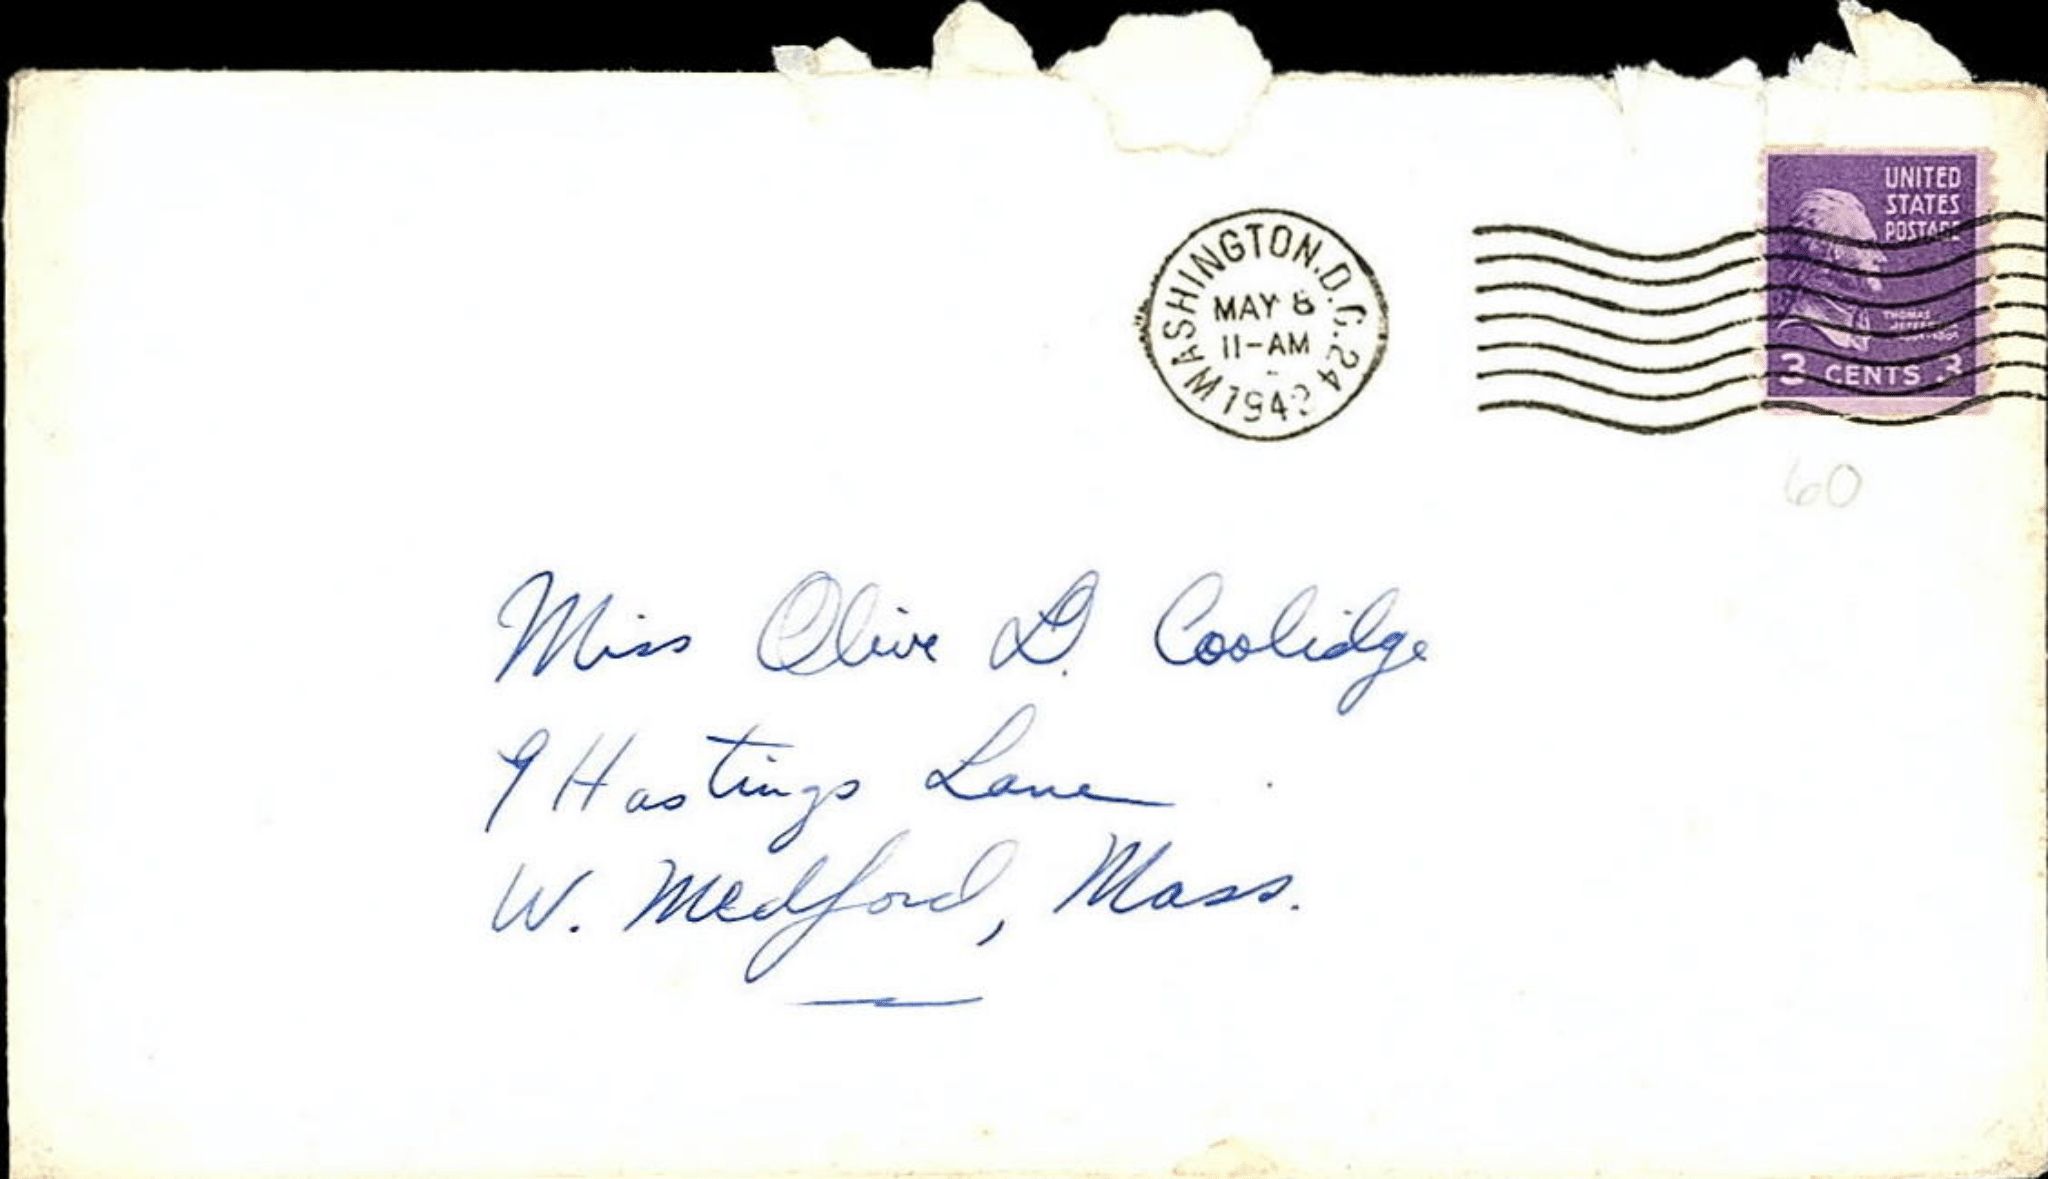 UNITED
STATES
POSTAGE
WASHINGTON, D.C. 24
MAY 8
11-AM
THOMAS
JEFFERSON
3 CENTS 3
60
Miss Olive D. Coolidge
9 Hastings Lane
W. Medford, Mass.